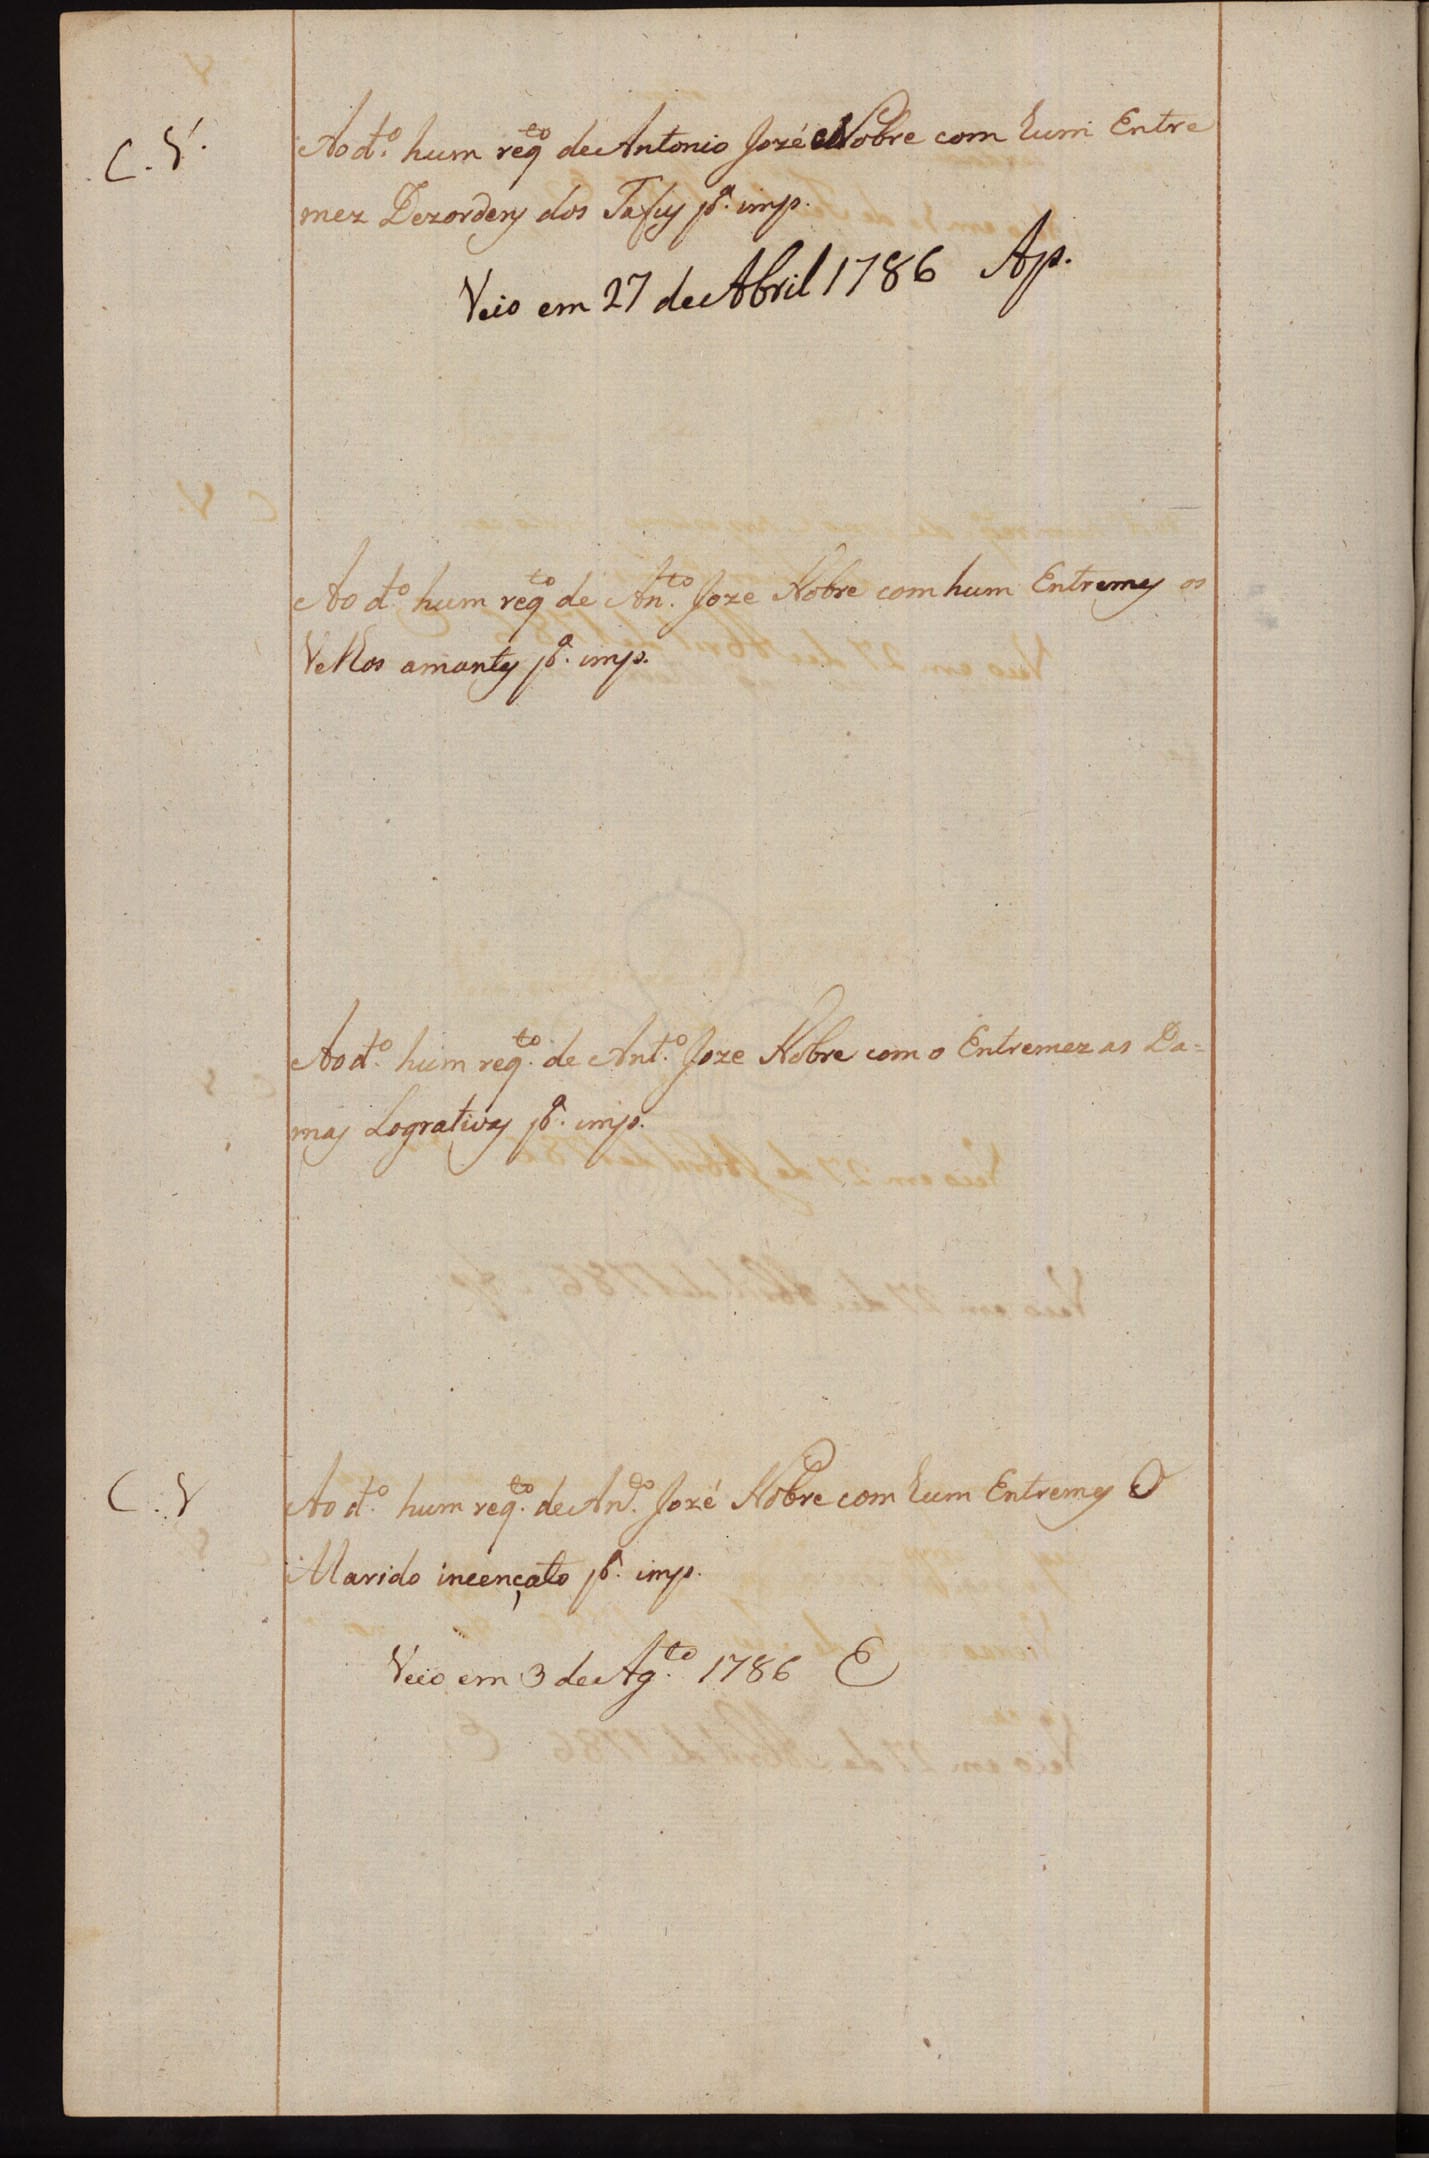 C. V.
Ao d.º hum req.to de Antonio Jozé Nobre com hum Entre
mez Dezordens dos Tafuis p.ª imp.
Veio em 27 de Abril 1786 Ap.
Ao d.º hum req.to de An.to Joze Nobre com hum Entremes os
Velhos amantes p.ª imp.
Ao d.º hum req.to de Ant.º Joze Nobre com o Entremez as Da=
mas Logrativas p.ª imp.
C. V
Ao d.º hum req.to de An.to Jozé Nobre com hum Entremes O
Marido incençato p.ª imp.
Veio em 3 de Ag.to 1786 E